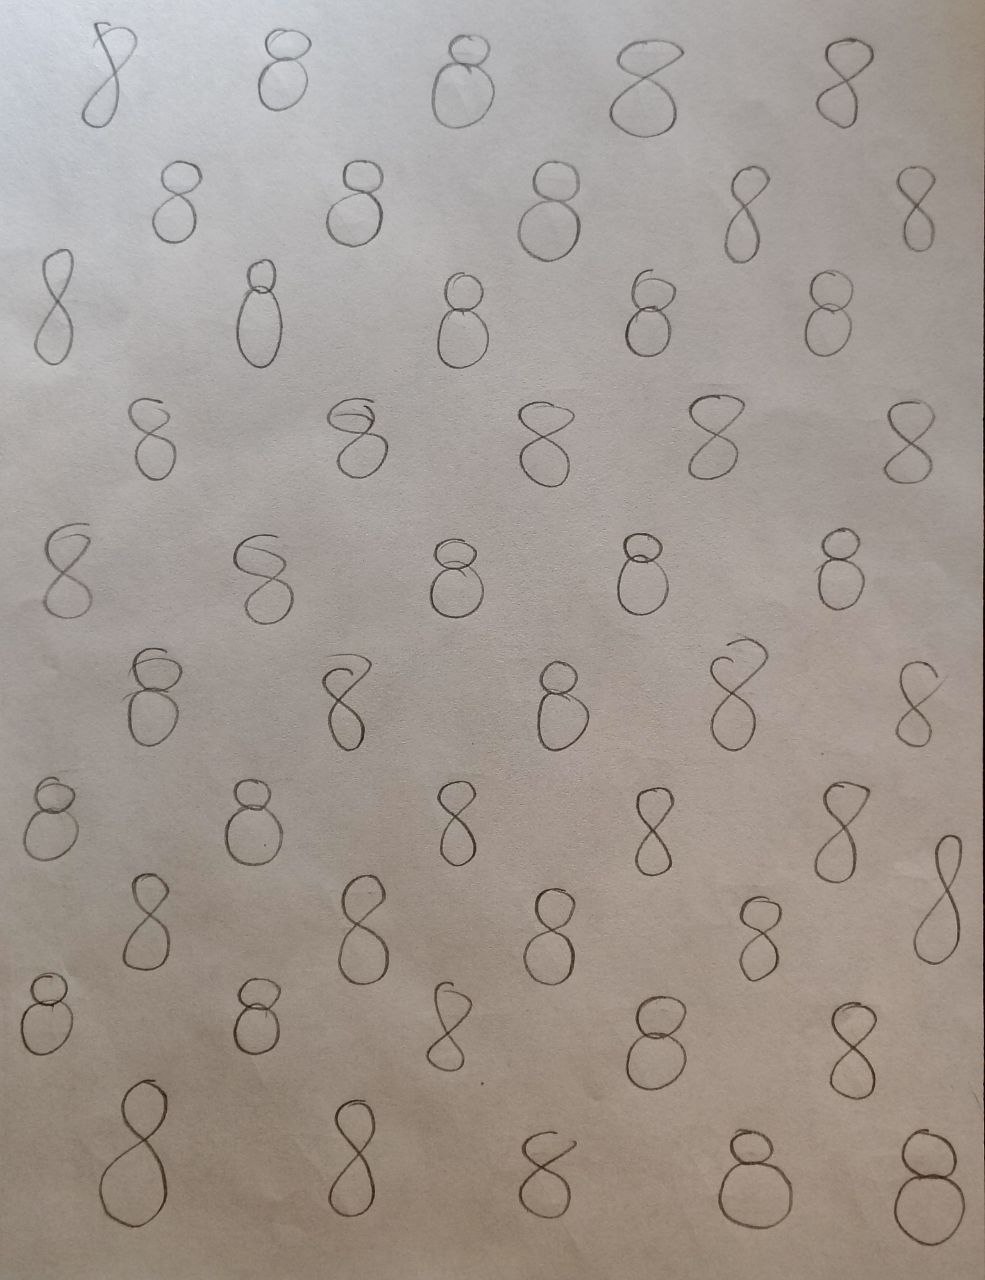 8 8 8 8 8
8 8 8 8 8
8 8 8 8 8
8 8 8 8 8
8 8 8 8 8
8 8 8 8 8
8 8 8 8 8
8 8 8 8 8
8 8 8 8 8
8 8 8 8 8